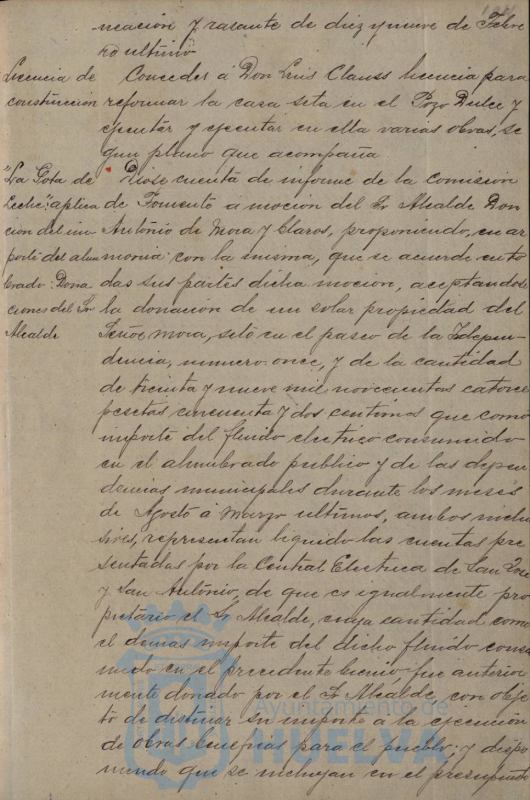 neación y rasante de diez y nueve de Febre
ro último
Licencia de
construcción
Conceder á Don Luis Clauss licencia para
reformar la casa sita en el Pozo Dulce y
ejecutar y ejecutar en ella varias obras, se
gun plano que acompaña
"La Gota de
Leche": aplica
cion del im
porte del alum
brado: Dona
ciones del Sr
Alcalde
Diose cuenta de informe de la Comisión
de Fomento á moción del Sr Alcalde Don
Antonio de Mora y Claros, proponiendo, en ar
monia con la misma, que se acuerde en to
das sus partes dicha moción, aceptandose
la donación de un solar propiedad del
Señor Mora, sito en el paseo de la Indepen-
dencia, numero once, y de la cantidad
de treinta y nueve mil novecientas catorce
pesetas cincuenta y dos centimos que como
importe del fluido electrico consumido
en el alumbrado publico y de las depen
dencias municipales durante los meses
de Agosto á Marzo ultimos, ambos inclu
sives, representan liquido las cuentas pre
sentadas por la Central Electrica de San José
y San Antonio, de que es igualmente pro
pietario el Sr Alcalde, cuya cantidad como
el demas importe del dicho fluido consu
mido en el precedente bienio fue anterior
mente donado por el Sr Alcalde, con obje
to de destinar su importe á la ejecución
de obras beneficas para el pueblo; y dispo
niendo que se incluyan en el presupuesto
Ayuntamiento de
HUELVA